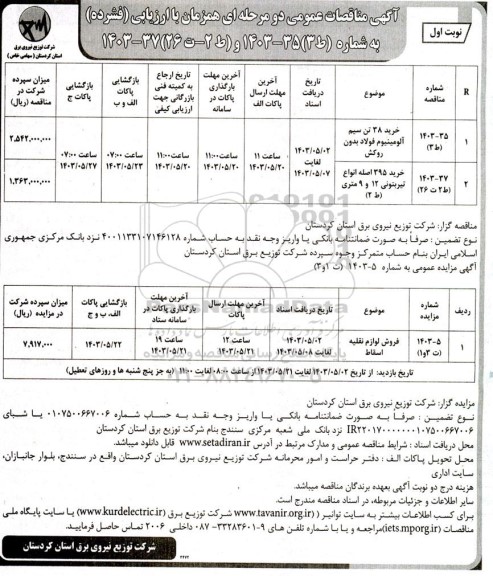 نوبت اول
آگهی مناقصات عمومی دو مرحله ای همزمان با ارزیابی (فشرده)
به شماره (ط۳)۳۵-۱۴۰۳ و (ط ۲-ت ۲۶)۳۷-۱۴۰۳
شرکت توزیع نیروی برق
استان کردستان (سهامی خاص)
R
شماره مناقصه
موضوع
تاریخ دریافت اسناد
آخرین مهلت ارسال پاکات الف
آخرین مهلت بارگذاری پاکات در سامانه
تاریخ ارجاع به کمیته فنی بازرگانی جهت ارزیابی کیفی
بازگشایی پاکات الف و ب
بازگشایی پاکات ج
میزان سپرده شرکت در مناقصه (ریال)
۱
۱۴۰۳-۳۵ (ط۳)
خرید ۳۸ تن سیم آلومینیوم فولاد بدون روکش
۱۴۰۳/۰۵/۰۲ لغایت ۱۴۰۳/۰۵/۰۷
ساعت ۱۱ ۱۴۰۳/۰۵/۲۰
ساعت ۱۱:۰۰ ۱۴۰۳/۰۵/۲۰
ساعت ۱۱:۰۰ ۱۴۰۳/۰۵/۲۰
ساعت ۰۷:۰۰ ۱۴۰۳/۰۵/۲۳
ساعت ۰۷:۰۰ ۱۴۰۳/۰۵/۲۷
۲,۵۴۲,۰۰۰,۰۰۰
۲
۱۴۰۳-۳۷ (ط۲ ت ۲۶)
خرید ۳۹۵ اصله انواع تیربتونی ۱۲ و ۹ متری (ط ۲)
۱,۳۶۳,۰۰۰,۰۰۰
مناقصه گزار: شرکت توزیع نیروی برق استان کردستان
نوع تضمین : صرفاً به صورت ضمانتنامه بانکی یا واریز وجه نقد به حساب شماره ۴۰۰۱۱۳۳۱۰۷۱۴۶۱۲۸ نزد بانک مرکزی جمهوری
اسلامی ایران بنام حساب متمرکز وجوه سپرده شرکت توزیع برق استان کردستان
آگهی مزایده عمومی به شماره ۵-۱۴۰۳ (ت ۱و۳)
ردیف
شماره مزایده
موضوع
تاریخ دریافت اسناد
آخرین مهلت ارسال پاکات
آخرین مهلت بارگذاری پاکات در سامانه ستاد
بازگشایی پاکات الف، ب و ج
میزان سپرده شرکت در مزایده (ریال)
۱
۱۴۰۳-۵ (ت ۳و۱)
فروش لوازم نقلیه اسقاط
۱۴۰۳/۰۵/۰۲ لغایت ۱۴۰۳/۰۵/۰۸
ساعت ۱۲ ۱۴۰۳/۰۵/۲۱
ساعت ۱۹ ۱۴۰۳/۰۵/۲۱
۱۴۰۳/۰۵/۲۲
۷,۹۱۷,۰۰۰
تاریخ بازدید: از تاریخ ۱۴۰۳/۰۵/۰۲ لغایت ۱۴۰۳/۰۵/۲۱از ساعت ۰۸:۰۰ لغایت ۱۱:۰۰ (به جز پنج شنبه ها و روزهای تعطیل)
مزایده گزار: شرکت توزیع نیروی برق استان کردستان
نوع تضمین : صرفاً به صورت ضمانتنامه بانکی یا واریز وجه نقد به حساب شماره ۰۱۰۷۵۰۰۶۶۷۰۰۶ یا شبای
نزد بانک ملی شعبه مرکزی سنندج بنام شرکت توزیع برق استان کردستان
محل دریافت اسناد : شرایط مناقصه عمومی و مدارک مرتبط در آدرس www.setadiran.ir قابل دانلود میباشد.
محل تحویل پاکات الف : دفتر حراست و امور محرمانه شرکت توزیع نیروی برق استان کردستان واقع در سنندج، بلوار جانبازان،
سایت اداری
هزینه درج دو نوبت آگهی بعهده برندگان مناقصه میباشد.
سایر اطلاعات و جزئیات مربوطه، در اسناد مناقصه مندرج است.
برای کسب اطلاعات بیشتر به سایت توانیر( www.tavanir.org.ir) شرکت توزیع برق (www.kurdelectric.ir) یا سایت پایگاه ملی
مناقصات (iets.mporg.ir)مراجعه و یا با شماره تلفن های ۹-۳۳۲۸۳۶۰۱ ۰۸۷ داخلی ۲۰۰۶ تماس حاصل فرمایید.
شرکت توزیع نیروی برق استان کردستان